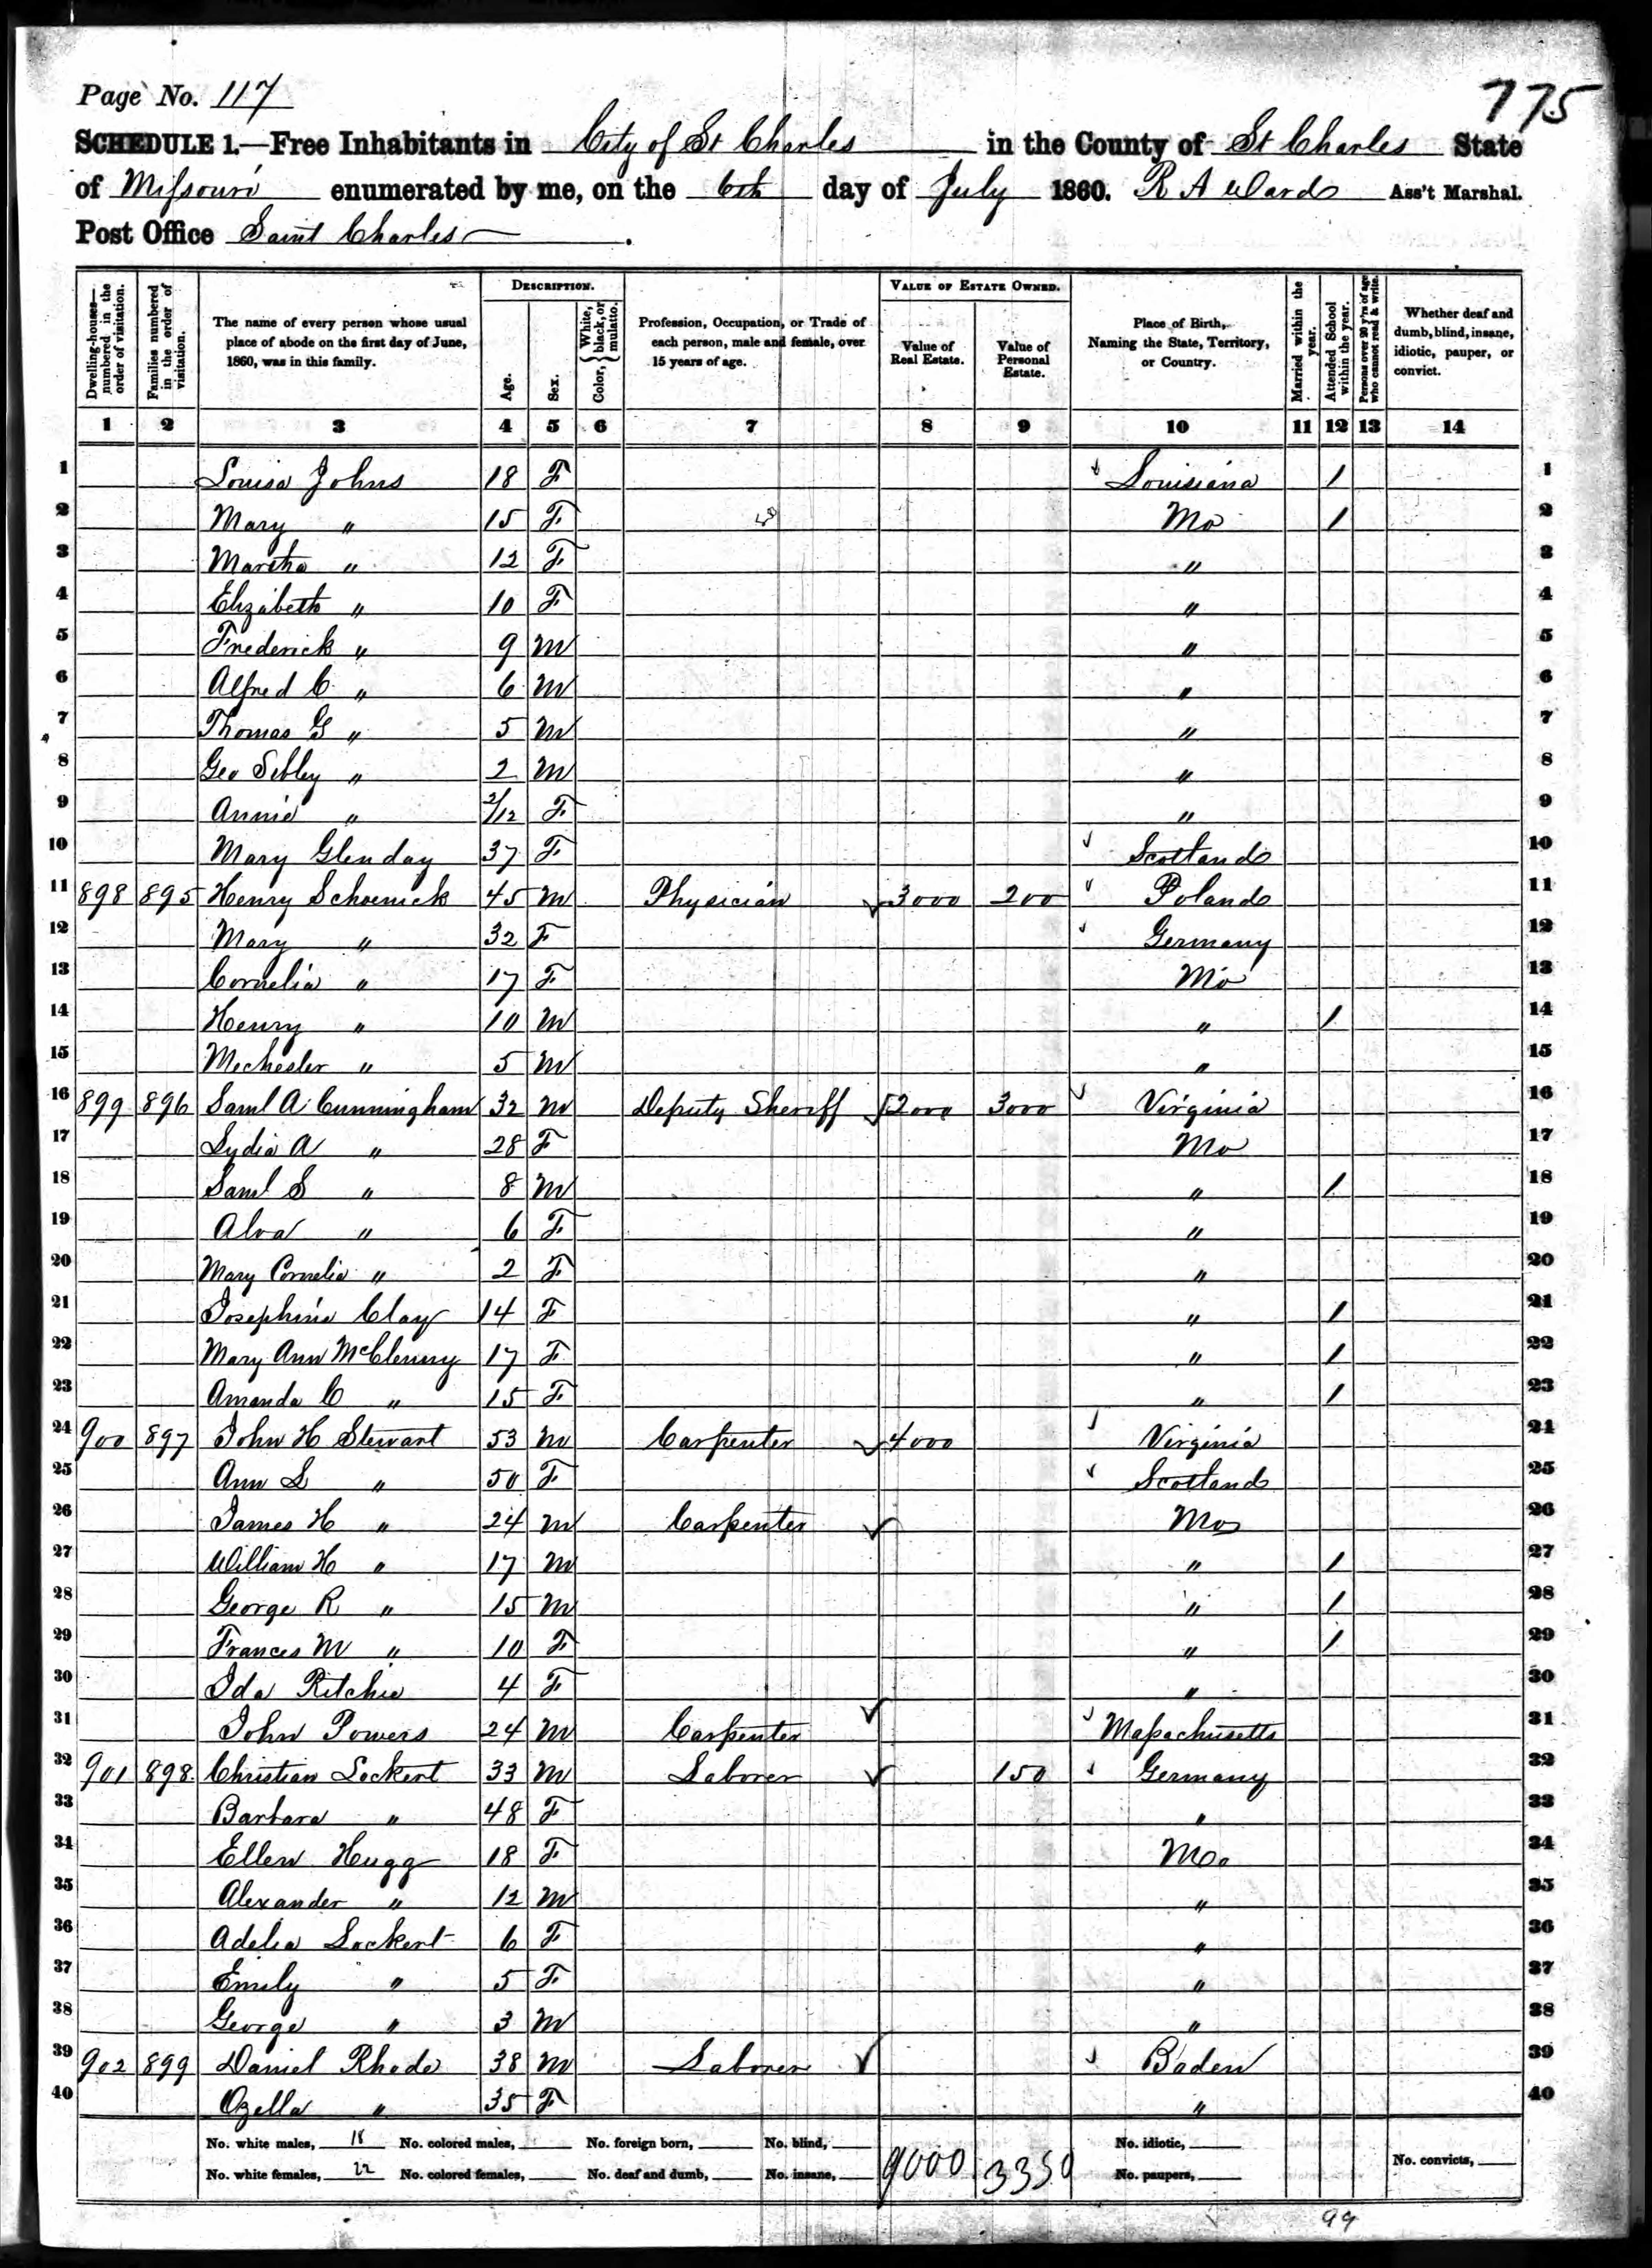 Page No. 117
775
SCHEDULE 1.—Free Inhabitants in City of St Charles in the County of St Charles State
of Missouri enumerated by me, on the 6th day of July 1860. R A Ward Ass't Marshal.
Post Office Saint Charles.
Dwelling-houses—numbered in the order of visitation. Families numbered in the order of visitation. The name of every person whose usual place of abode on the first day of June, 1860, was in this family. DESCRIPTION. Age. Sex. Color, { White, black, or mulatto. Profession, Occupation, or Trade of each person, male and female, over 15 years of age. VALUE OF ESTATE OWNED. Value of Real Estate. Value of Personal Estate. Place of Birth, Naming the State, Territory, or Country. Married within the year. Attended School within the year. Persons over 20 y'rs of age who cannot read & write. Whether deaf and dumb, blind, insane, idiotic, pauper, or convict.
1 2 3 4 5 6 7 8 9 10 11 12 13 14
1 Louisa Johns 18 F Louisiana / 1
2 Mary " 15 F Mo / 2
3 Martha " 12 F " 3
4 Elizabeth " 10 F " 4
5 Frederick " 9 M " 5
6 Alfred C " 6 M " 6
7 Thomas G " 5 M " 7
8 Geo Sibley " 2 M " 8
9 Annie " 2/12 F " 9
10 Mary Glenday 37 F Scotland 10
11 898 895 Henry Schoenick 45 M Physician 3000 200 Poland 11
12 Mary " 32 F Germany 12
13 Cornelia " 17 F Mo 13
14 Henry " 10 M " / 14
15 Mechesler " 5 M " 15
16 899 896 Saml A Cunningham 32 M Deputy Sheriff 2000 3000 Virginia 16
17 Lydia A " 28 F Mo 17
18 Saml S " 8 M " / 18
19 Alva " 6 F " 19
20 Mary Cornelia " 2 F " 20
21 Josephine Clay 14 F " / 21
22 Mary Ann McClenny 17 F " / 22
23 Amanda C " 15 F " / 23
24 900 897 John H Stewart 53 M Carpenter 4000 Virginia 24
25 Ann L " 50 F Scotland 25
26 James H " 24 M Carpenter Mo 26
27 William H " 17 M " / 27
28 George R " 15 M " / 28
29 Frances M " 10 F " / 29
30 Ida Ritchie 4 F " 30
31 John Powers 24 M Carpenter Massachusetts 31
32 901 898 Christian Lockert 33 M Laborer 150 Germany 32
33 Barbara " 48 F " 33
34 Ellen Hugg 18 F Mo 34
35 Alexander " 12 M " 35
36 Adelia Lockert 6 F " 36
37 Emily " 5 F " 37
38 George " 3 M " 38
39 902 899 Daniel Rhode 38 M Laborer Baden 39
40 Ozella " 35 F " 40
No. white males, 18 No. colored males, No. foreign born, No. blind, 9000 3350 No. idiotic,
No. white females, 22 No. colored females, No. deaf and dumb, No. insane, No. paupers, No. convicts,
99